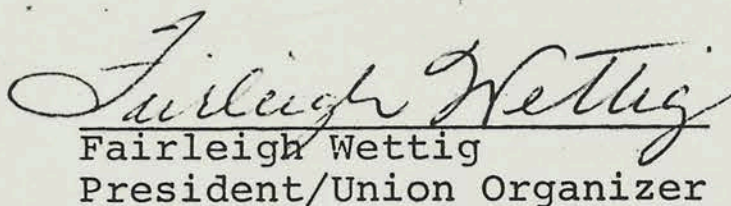 Fairleigh Wettig
Fairleigh Wettig
President/Union Organizer